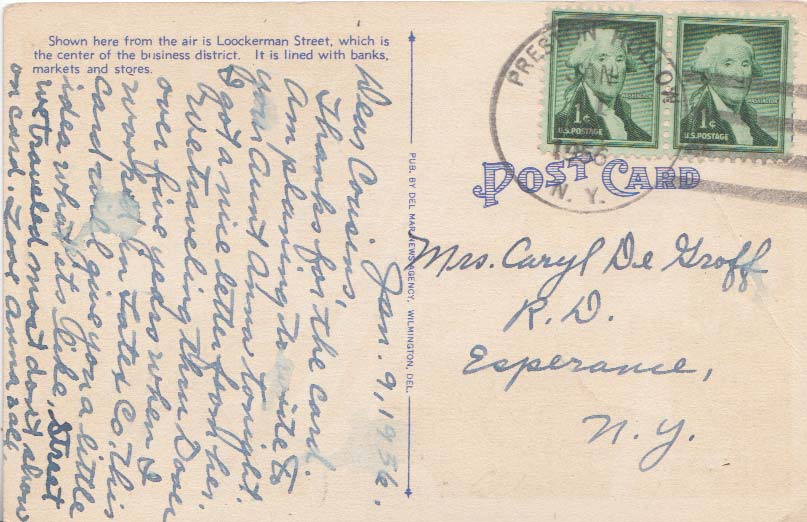 Shown here from the air is Loockerman Street, which is
the center of the business district. It is lined with banks,
markets and stores.
Jan. 9, 1956.
Dear Cousins,
Thanks for the card.
Am planing to write to
your Aunt Anna tonight.
I got a nice letter from her.
We traveling thru Dover
over five years when I
worked in Tates Co. This
card will give you a little
idea what its like, Street
we traveled most don't show
on card. Love Anna & all.
PUB. BY DEL MAR NEWS AGENCY, WILMINGTON, DEL.
PRESTON HOLLOW
JAN
1956
N. Y.
1¢
WASHINGTON
U.S. POSTAGE
1¢
WASHINGTON
U.S. POSTAGE
POST CARD
Mrs. Caryl De Groff
R. D.
Esperance,
N. Y.